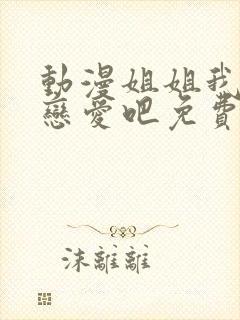 動漫姐姐我
戀愛吧免費
沫離離